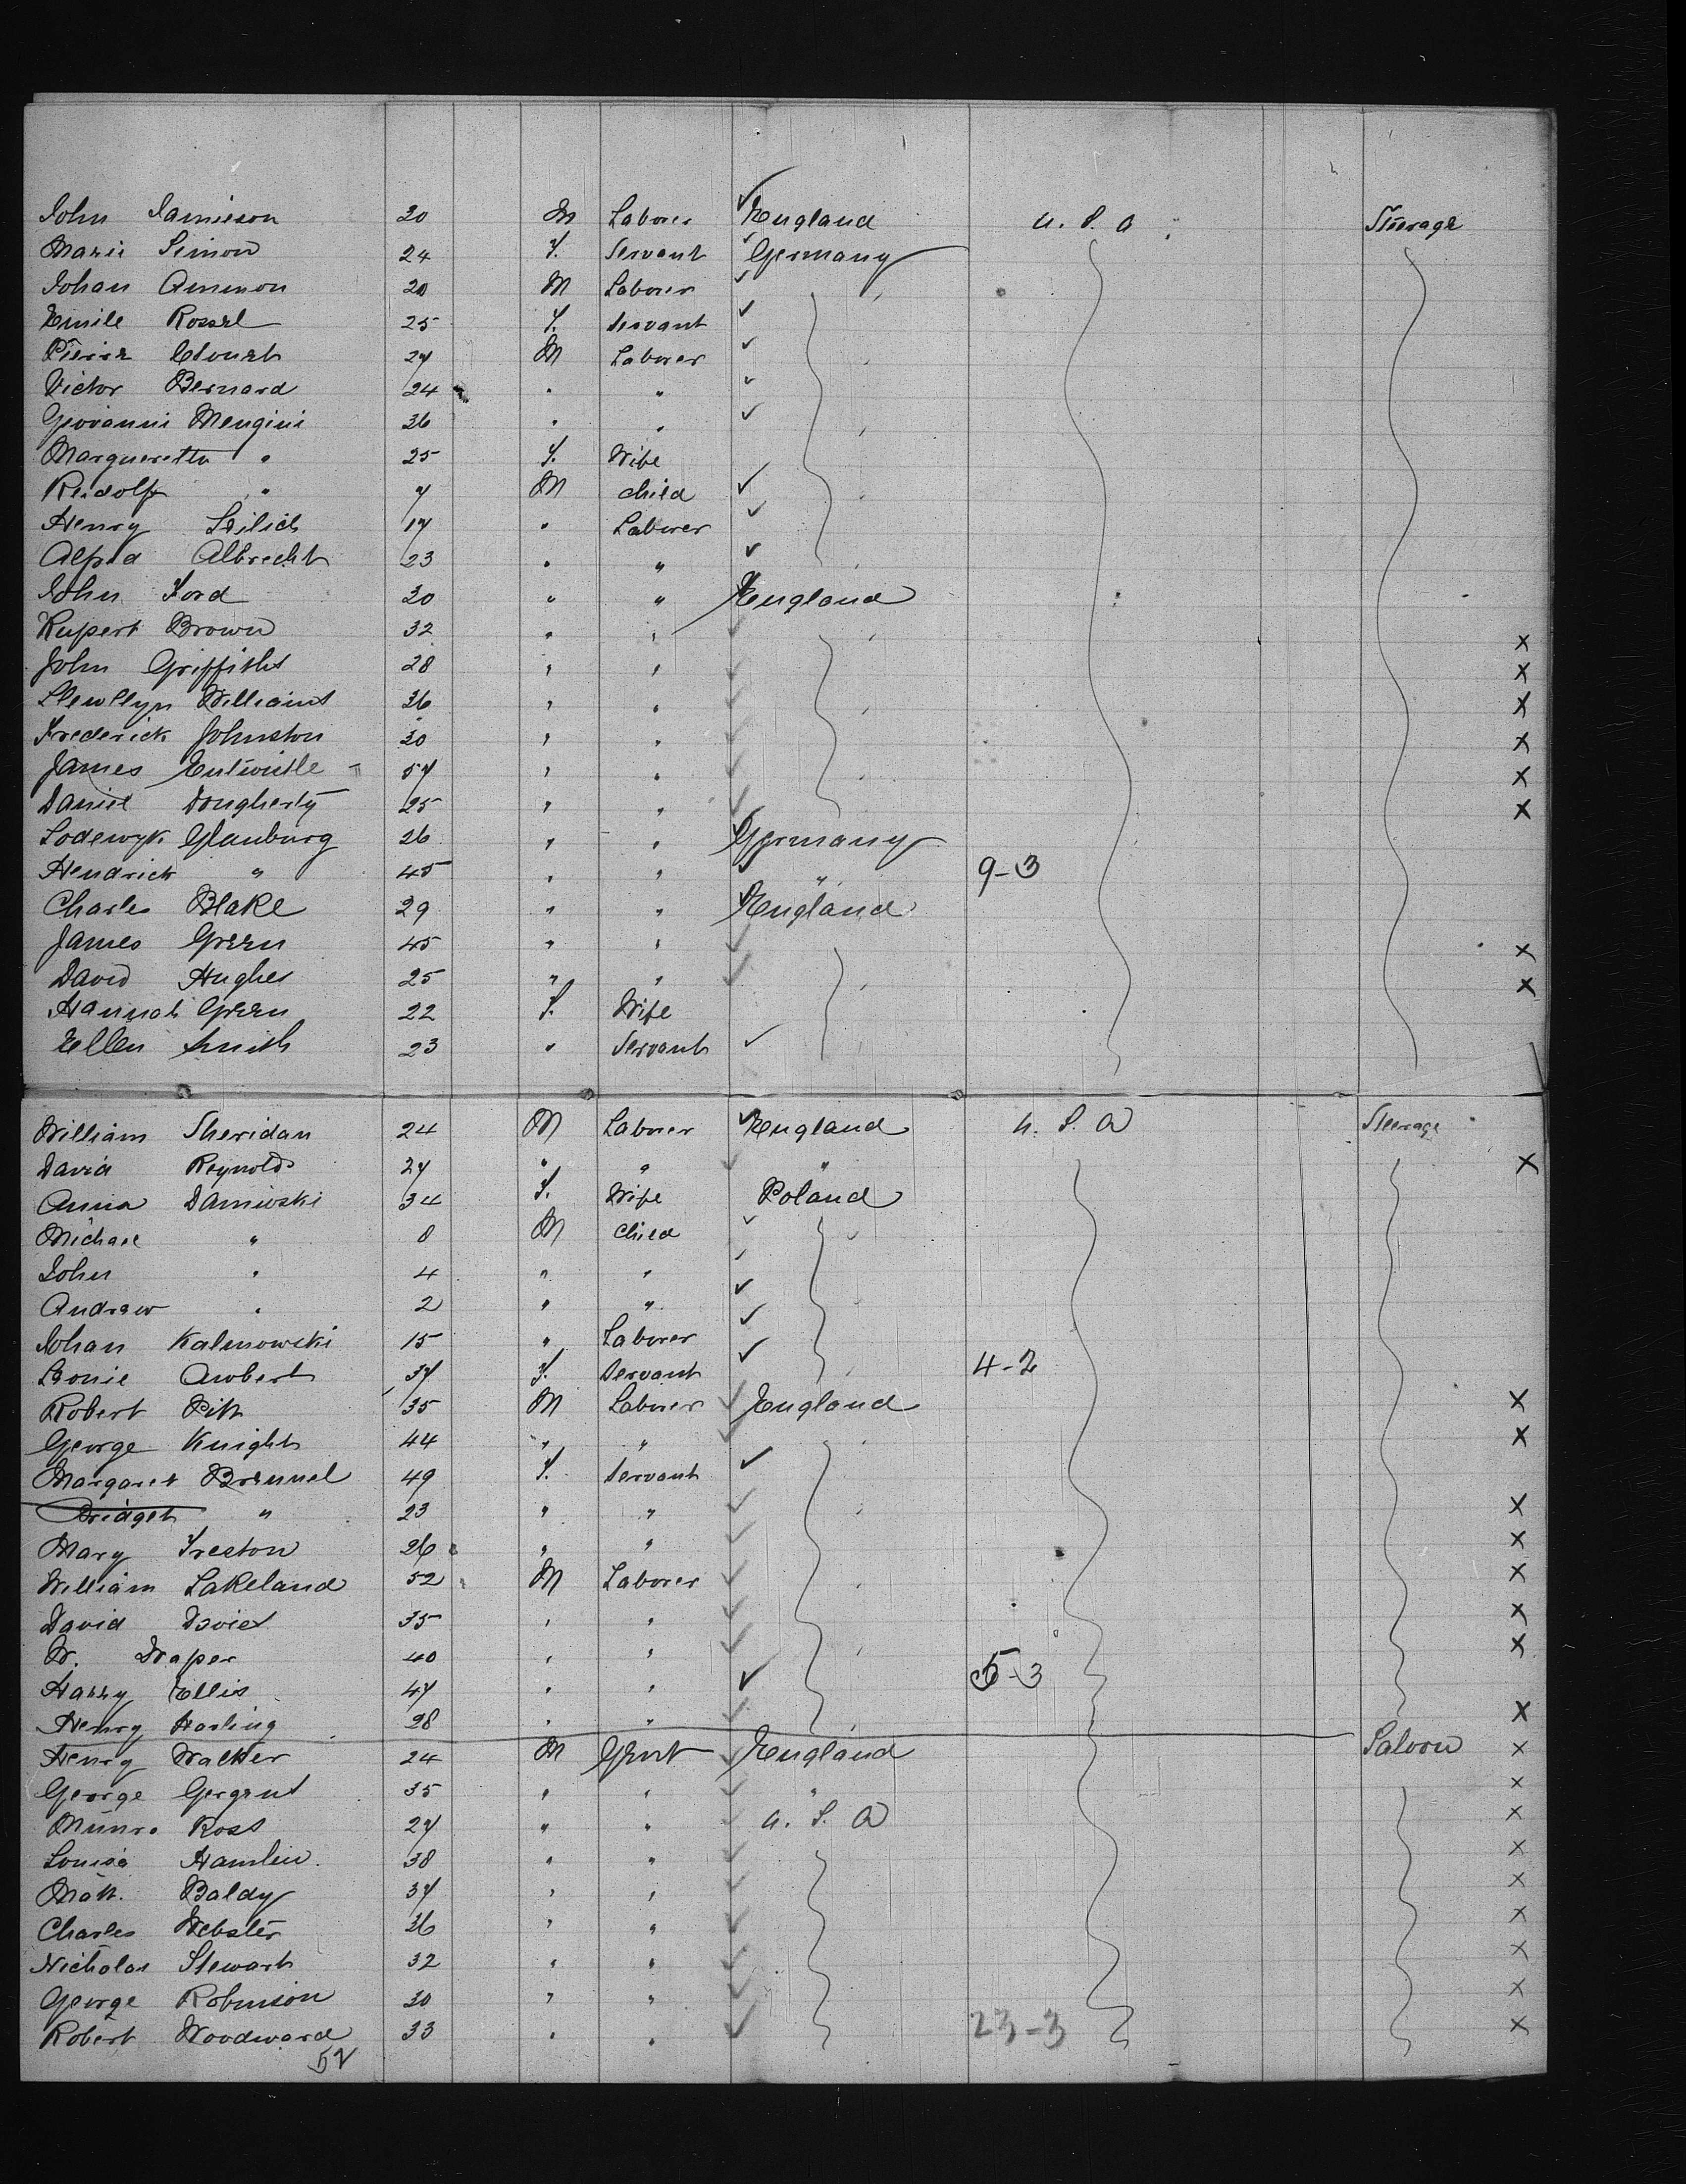 John Jamieson 20 M Laborer England U. S. A Steerage
Marie Simon 24 F. Servant Germany
Johan Ammon 20 M Laborer
Emile Rossel 25 F. Servant
Pierre 27 M Laborer
Victor Bernard 24 " "
Giovanni Mengini 36 " "
Margueretta " 25 F. Wife
Rudolf " 7 M child
Henry Seilich 17 " Laborer
Alfred Albrecht 23 " "
John Ford 30 " " England
Rupert Brown 32 " " X
John Griffiths 28 " " X
Llewllyn Williams 36 " " X
Frederick Johnston 30 " " X
James Entwistle 57 " " X
Daniel Dougherty 25 " " X
Lodewyk Glanburg 26 " " Germany
Hendrick " 45 " " " 9-3
Charles Blake 29 " " England
James Green 45 " " X
David Hughes 25 " " X
Hannah Green 22 F. Wife
Ellen Smith 23 " Servant
William Sheridan 24 M Laborer England U. S. A Steerage
David Reynolds 27 " " " X
Anna Damiwski 34 F. Wife Poland
Michael " 8 M child
John " 4 " "
Andrew " 2 " "
Johan Kalmowski 15 " Laborer
Leonie Aubert 37 F. Servant 4-2
Robert Pitt 35 M Laborer England X
George Knight 44 " " X
Margaret Brennel 49 F. Servant
Bridget " 23 " " X
Mary Freston 26 " " X
William Lakeland 52 M Laborer X
David Davies 35 " " X
W. Draper 40 " " X
Harry Ellis 47 " " 5-3
Henry Harling 28 " " X
Henry Walker 24 M Gent England Saloon X
George Gergent 35 " " " X
Munro Ross 27 " " U. S. A X
Louisa Hamlin 38 " " X
Matt. Baldy 37 " " X
Charles Webster 36 " " X
Nicholas Stewart 32 " " X
George Robinson 30 " " X
Robert Woodward 33 " " 23-3 X
52